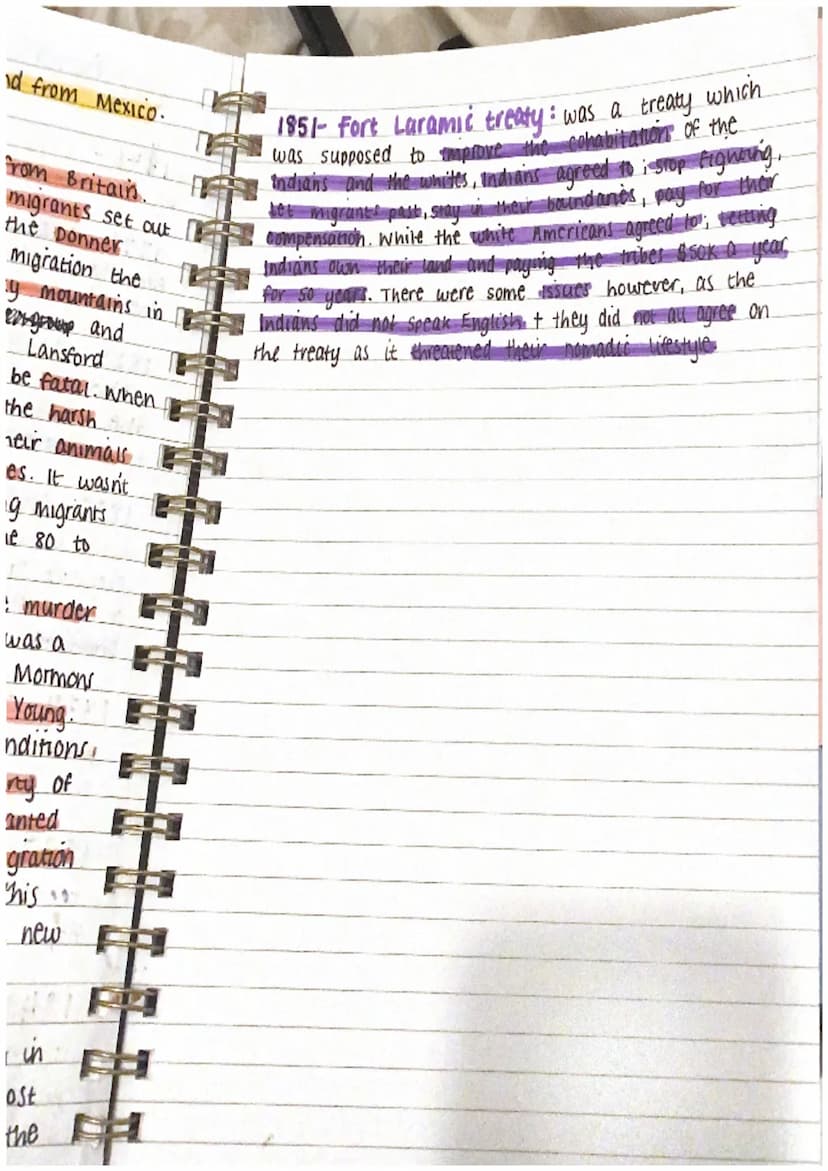 nd from Mexico.
from Britain.
migrants set out
the Donner
migration the
y mountains in
and
Lansford
be fatal. When
the harsh
heir animals
es. It wasn't
g migrants
e 80 to
: murder
was a
Mormons
Young.
nditions.
rty of
anted
gration
This
new
in
ost
the
1851- Fort Laramie treaty: was a treaty which
was supposed to improve the cohabitation of the
Indians and the whites, Indians agreed to ; stop fighting,
let migrants past, stay in their boundaries, pay for their
compensation. While the white Americans agreed to; letting
Indians own their land and paying the tribes $50K a year
for 50 years. There were some issues however, as the
Indians did not speak English + they did not all agree on
the treaty as it threatened their nomadic lifestyle.